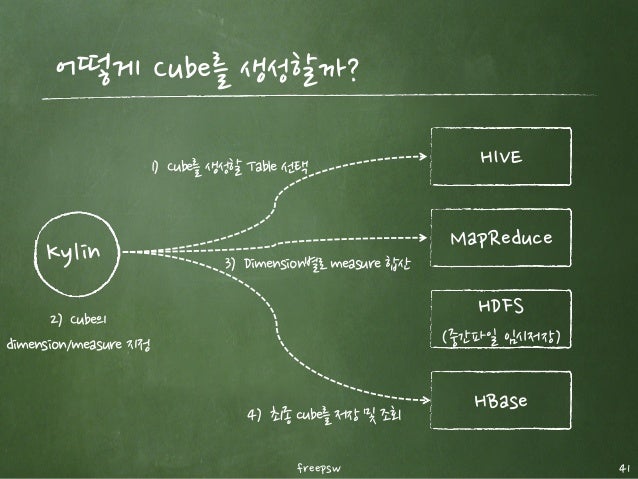 어떻게 cube를 생성할까?
1) cube를 생성할 Table 선택
HIVE
Kylin
MapReduce
3) Dimension별로 measure 합산
2) cube의
dimension/measure 지정
HDFS
(중간파일 임시저장)
HBase
4) 최종 cube를 저장 및 조회
freepsw
41